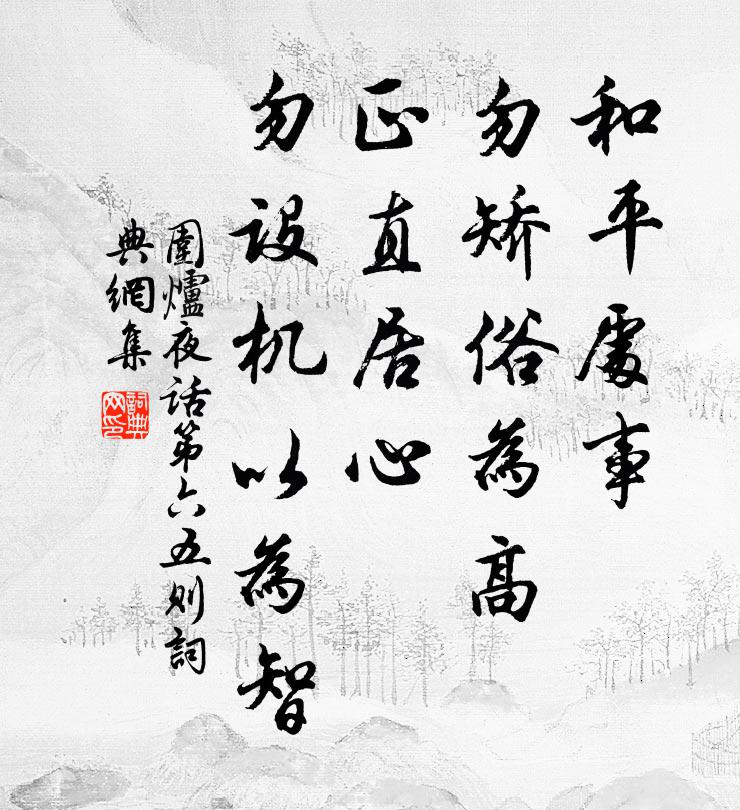 和平處事
勿矫俗為高
正直居心
勿設机以為智
圍爐夜話第六五则詞
典網集
詞典
网印